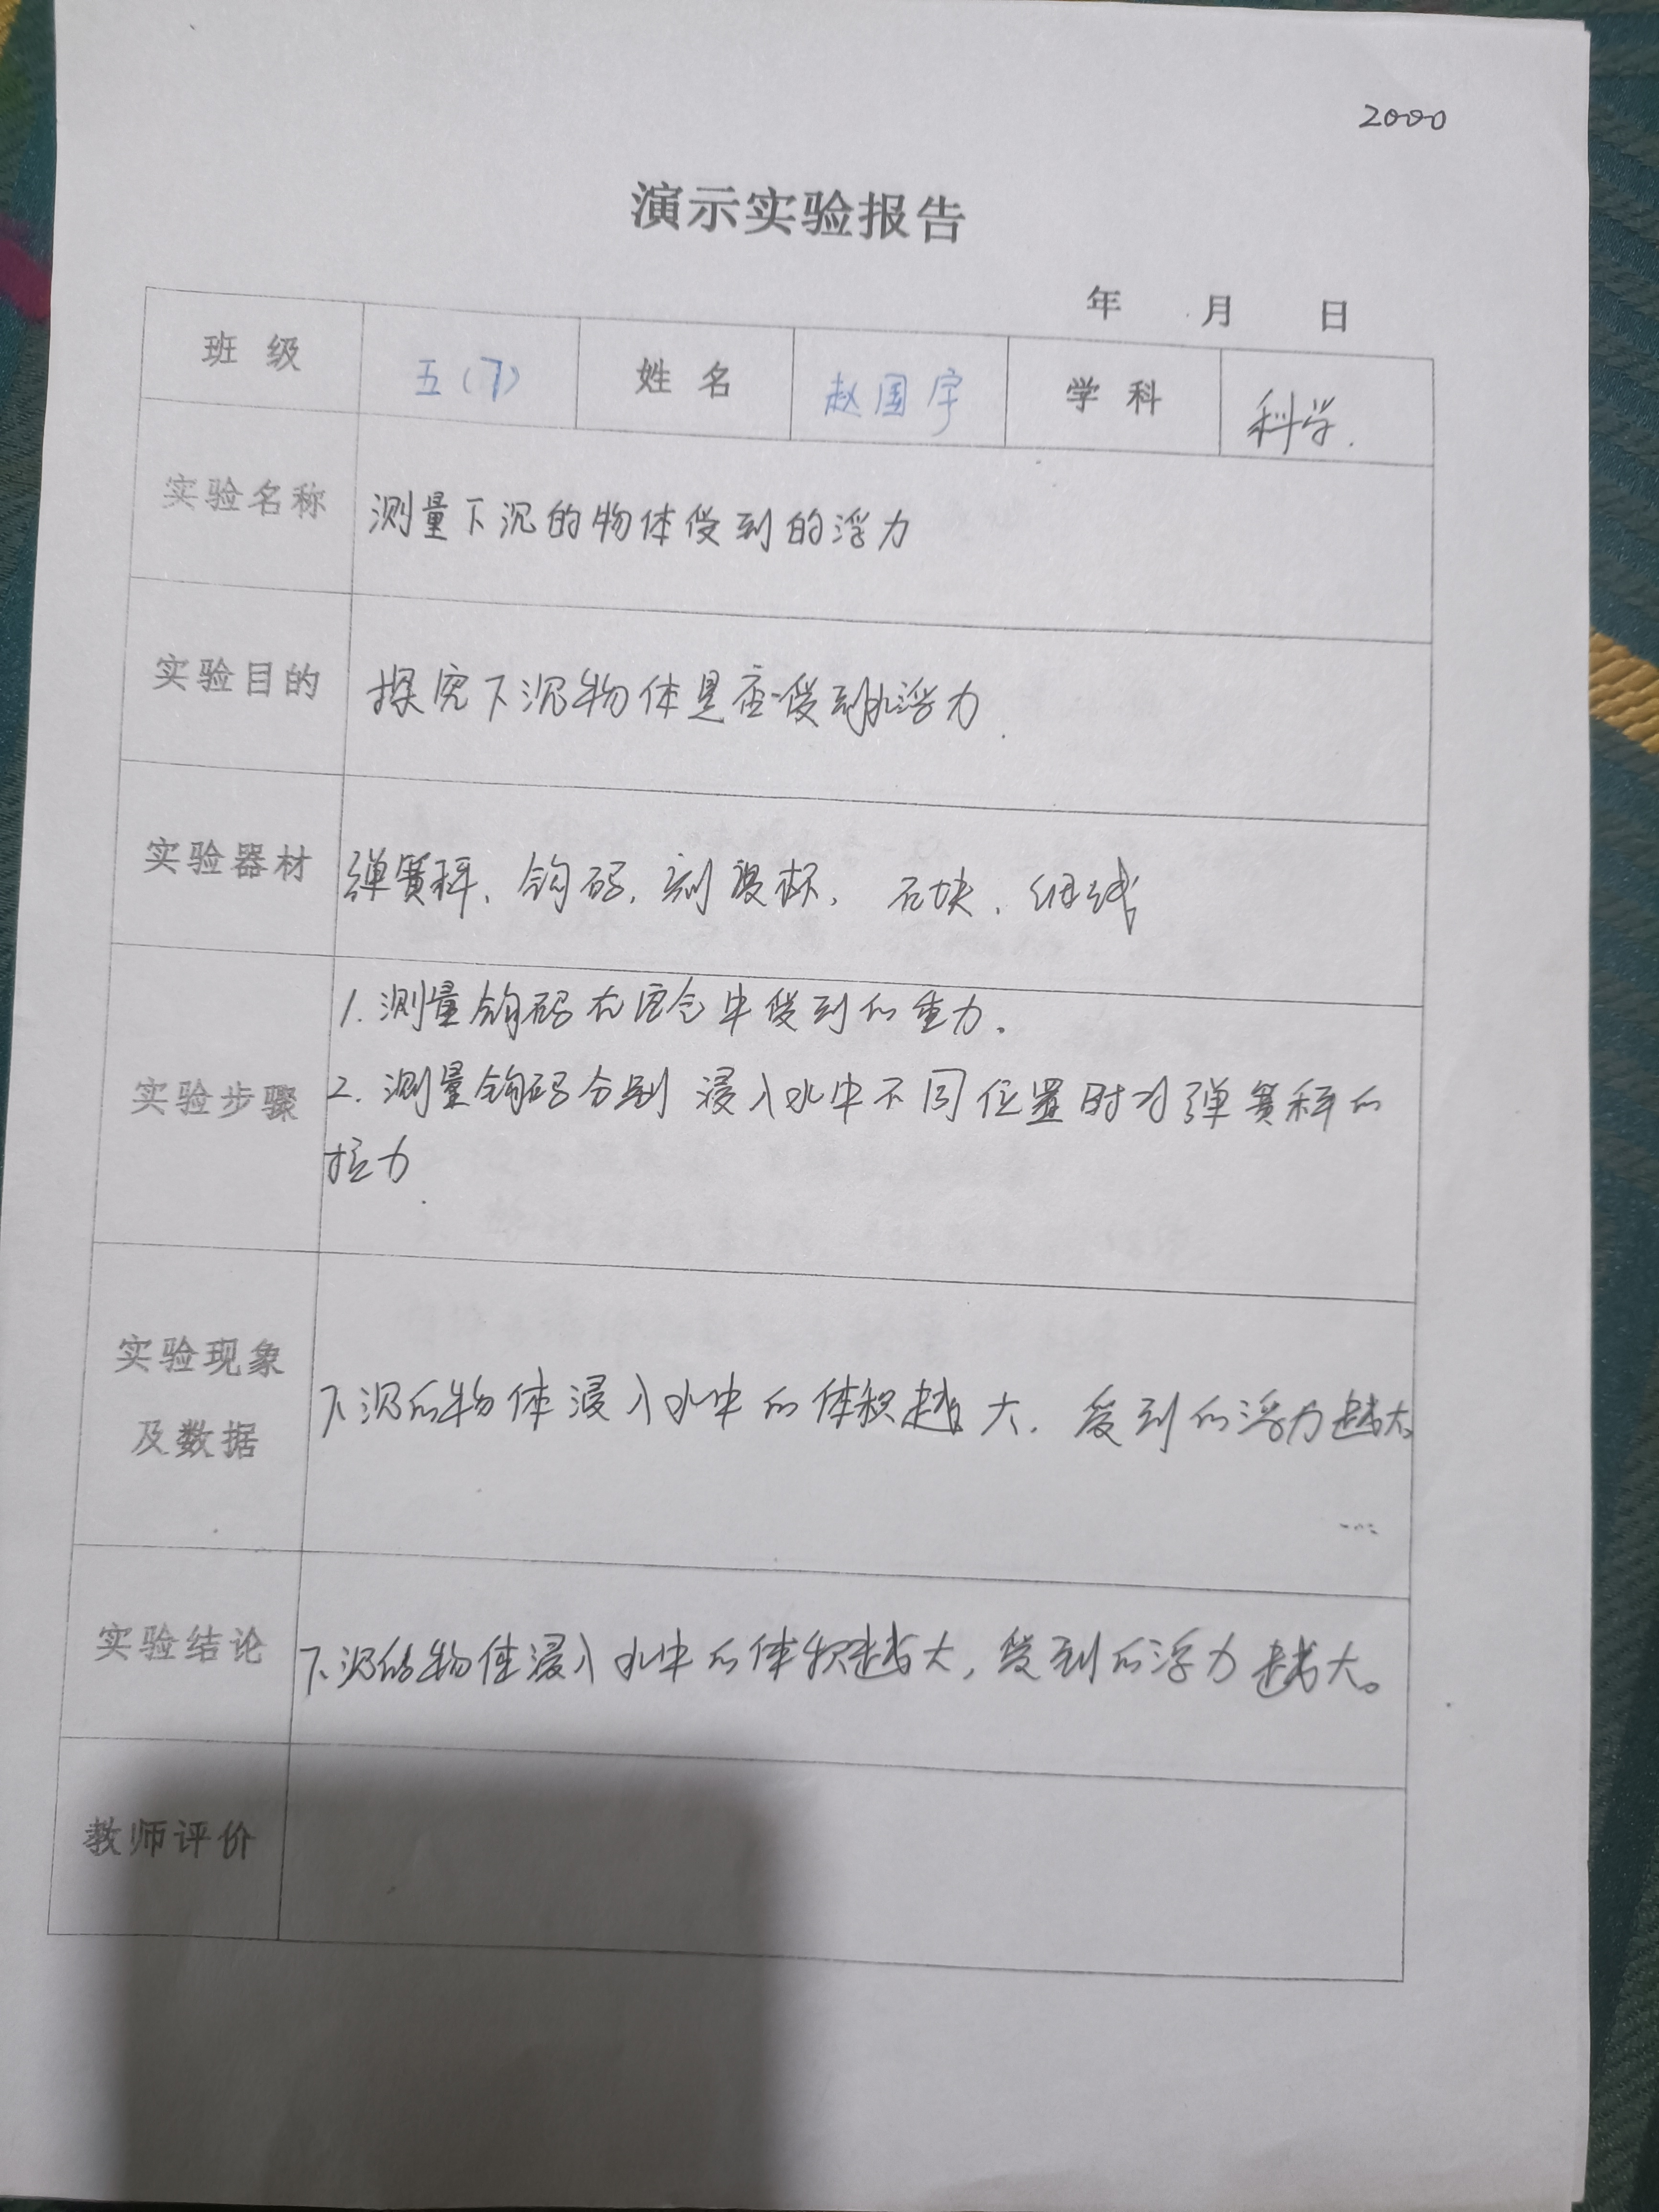 2000
演示实验报告
年 月 日
班级 五(7) 姓名 赵国宇 学科 科学.
实验名称 测量下沉的物体受到的浮力
实验目的 探究下沉物体是否受到水浮力.
实验器材 弹簧秤、钩码、刻度杯、石块、细线
1.测量钩码在空气中受到的重力.
实验步骤 2.测量钩码分别浸入水中不同位置时对弹簧秤的
拉力
实验现象
及数据 下沉的物体浸入水中的体积越大.受到的浮力越大。
实验结论 下沉的物体浸入水中的体积越大,受到的浮力越大。
教师评价